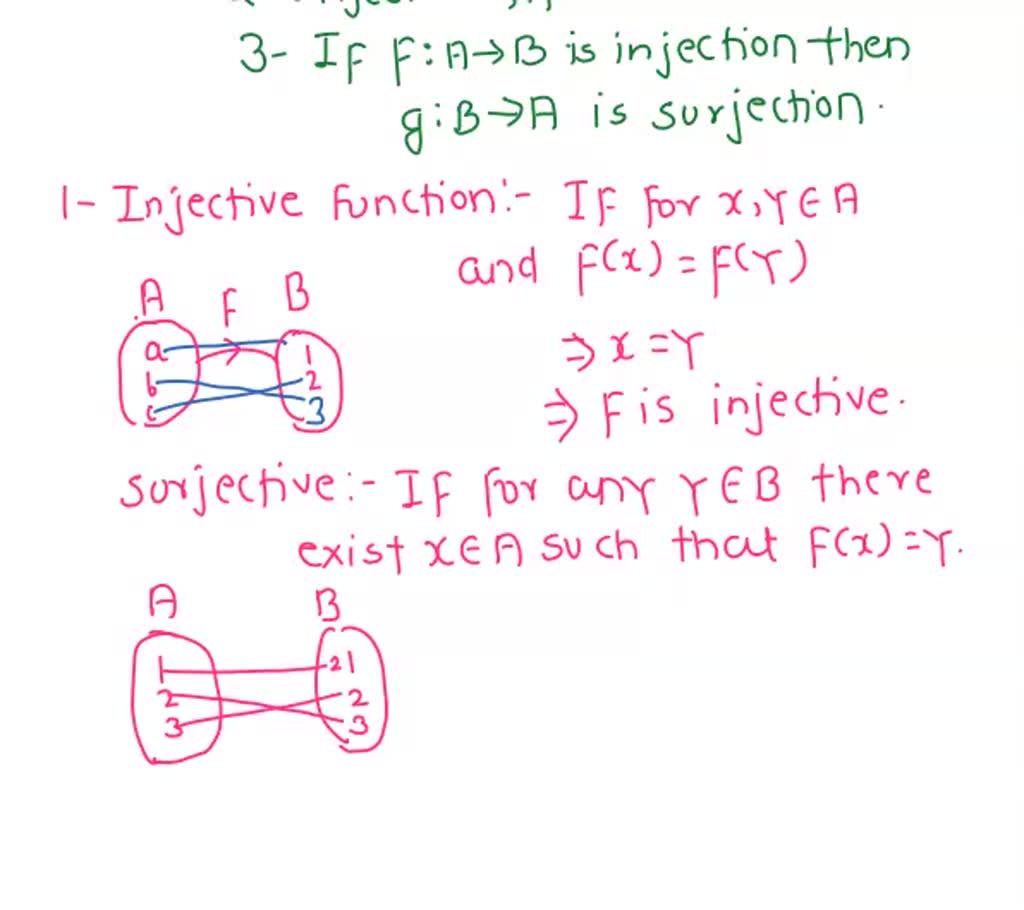 3- If F:A→B is injection then
g:B→A is surjection.
1- Injective function:- If for x,y∈A
and F(x)=F(y)
A F B
a 1
b 2
c 3
⇒ x=y
⇒ F is injective.
surjective:- If for any y∈B there
exist x∈A such that F(x)=y.
A B
1 21
2 2
3 3